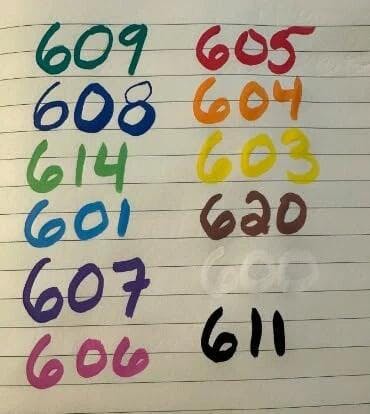 609 605
608 604
614 603
601 620
607 600
606 611